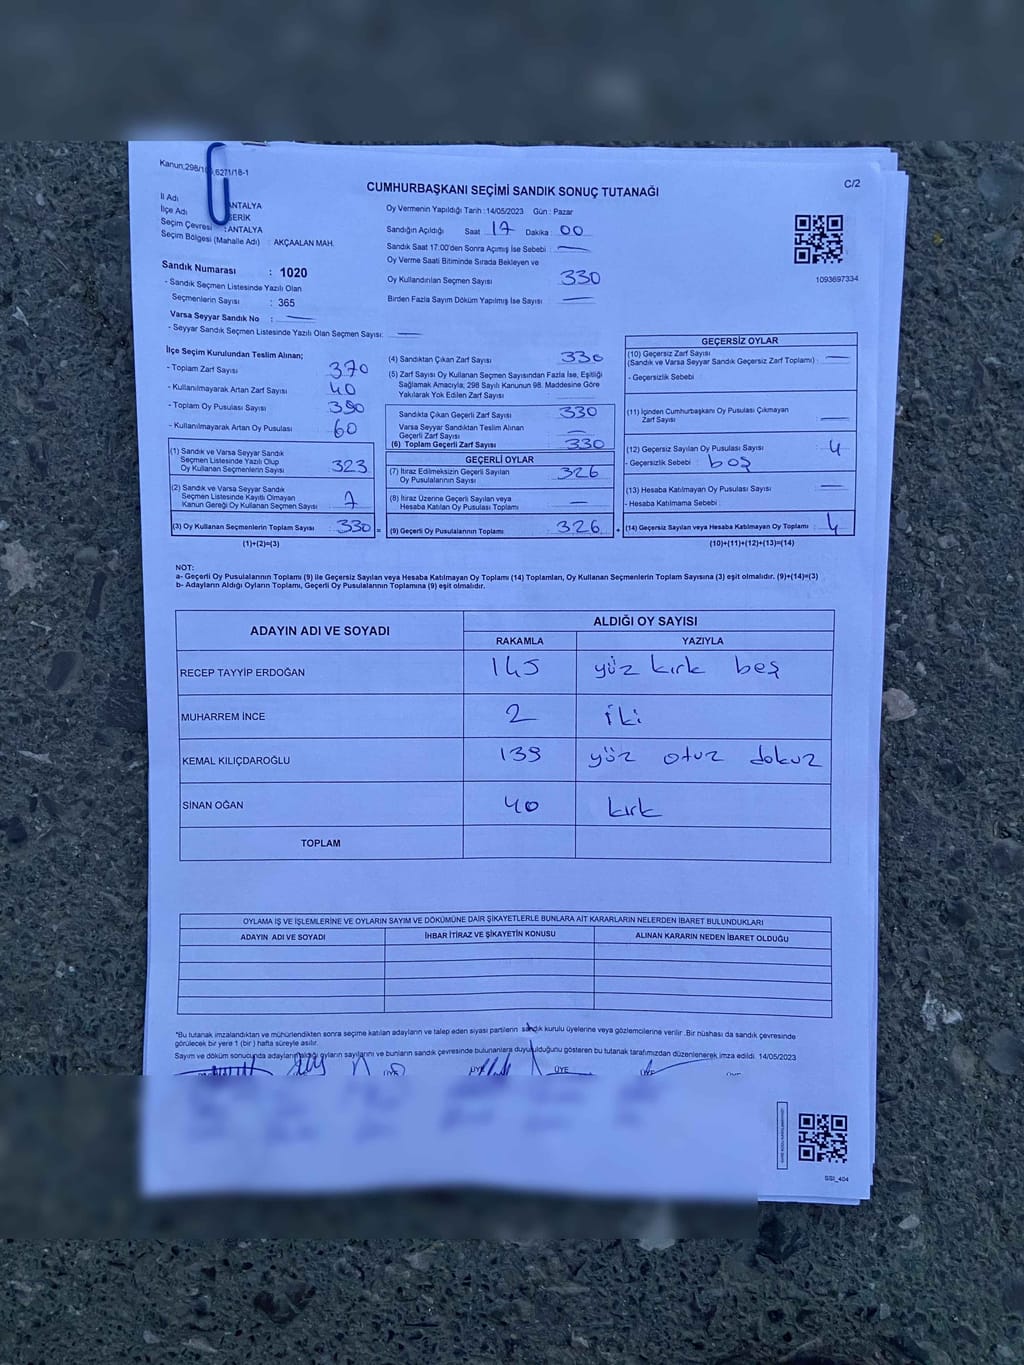 Kanun:298/1 6271/18-1
CUMHURBAŞKANI SEÇİMİ SANDIK SONUÇ TUTANAĞI
C/2
İl Adı ANTALYA
İlçe Adı SERİK
Seçim Çevresi : ANTALYA
Seçim Bölgesi (Mahalle Adı) : AKÇAALAN MAH.
Sandık Numarası : 1020
- Sandık Seçmen Listesinde Yazılı Olan
Seçmenlerin Sayısı : 365
Varsa Seyyar Sandık No :
- Seyyar Sandık Seçmen Listesinde Yazılı Olan Seçmen Sayısı:
Oy Vermenin Yapıldığı Tarih : 14/05/2023 Gün : Pazar
Sandığın Açıldığı Saat 17 Dakika 00
Sandık Saat 17:00'den Sonra Açımış İse Sebebi :
Oy Verme Saati Bitiminde Sırada Bekleyen ve
Oy Kullandırılan Seçmen Sayısı 330
Birden Fazla Sayım Döküm Yapılmış İse Sayısı
1093697334
İlçe Seçim Kurulundan Teslim Alınan;
- Toplam Zarf Sayısı 370
- Kullanılmayarak Artan Zarf Sayısı 40
- Toplam Oy Pusulası Sayısı 390
- Kullanılmayarak Artan Oy Pusulası 60
(1) Sandık ve Varsa Seyyar Sandık
Seçmen Listesinde Yazılı Olup
Oy Kullanan Seçmenlerin Sayısı 323
(2) Sandık ve Varsa Seyyar Sandık
Seçmen Listesinde Kayıtlı Olmayan
Kanun Gereği Oy Kullanan Seçmen Sayısı 7
(3) Oy Kullanan Seçmenlerin Toplam Sayısı 330 =
(1)+(2)=(3)
(4) Sandıktan Çıkan Zarf Sayısı 330
(5) Zarf Sayısı Oy Kullanan Seçmen Sayısından Fazla İse, Eşitliği
Sağlamak Amacıyla; 298 Sayılı Kanunun 98. Maddesine Göre
Yakılarak Yok Edilen Zarf Sayısı
Sandıkta Çıkan Geçerli Zarf Sayısı 330
Varsa Seyyar Sandıktan Teslim Alınan
Geçerli Zarf Sayısı
(6) Toplam Geçerli Zarf Sayısı 330
GEÇERLİ OYLAR
(7) İtiraz Edilmeksizin Geçerli Sayılan
Oy Pusulalarının Sayısı 326
(8) İtiraz Üzerine Geçerli Sayılan veya
Hesaba Katılan Oy Pusulası Toplamı
(9) Geçerli Oy Pusulalarının Toplamı 326 +
GEÇERSİZ OYLAR
(10) Geçersiz Zarf Sayısı
(Sandık ve Varsa Seyyar Sandık Geçersiz Zarf Toplamı)
- Geçersizlik Sebebi
(11) İçinden Cumhurbaşkanı Oy Pusulası Çıkmayan
Zarf Sayısı
(12) Geçersiz Sayılan Oy Pusulası Sayısı 4
- Geçersizlik Sebebi : boş
(13) Hesaba Katılmayan Oy Pusulası Sayısı
- Hesaba Katılmama Sebebi
(14) Geçersiz Sayılan veya Hesaba Katılmayan Oy Toplamı 4
(10)+(11)+(12)+(13)=(14)
NOT:
a- Geçerli Oy Pusulalarının Toplamı (9) ile Geçersiz Sayılan veya Hesaba Katılmayan Oy Toplamı (14) Toplamları, Oy Kullanan Seçmenlerin Toplam Sayısına (3) eşit olmalıdır. (9)+(14)=(3)
b- Adayların Aldığı Oyların Toplamı, Geçerli Oy Pusulalarının Toplamına (9) eşit olmalıdır.
ADAYIN ADI VE SOYADI ALDIĞI OY SAYISI
RAKAMLA YAZIYLA
RECEP TAYYİP ERDOĞAN 145 yüz kırk beş
MUHARREM İNCE 2 iki
KEMAL KILIÇDAROĞLU 139 yüz otuz dokuz
SİNAN OĞAN 40 kırk
TOPLAM
OYLAMA İŞ VE İŞLEMLERİNE VE OYLARIN SAYIM VE DÖKÜMÜNE DAİR ŞİKAYETLERLE BUNLARA AİT KARARLARIN NELERDEN İBARET BULUNDUKLARI
ADAYIN ADI VE SOYADI İHBAR İTİRAZ VE ŞİKAYETİN KONUSU ALINAN KARARIN NEDEN İBARET OLDUĞU
*Bu tutanak imzalandıktan ve mühürlendikten sonra seçime katılan adayların ve talep eden siyasi partilerin sandık kurulu üyelerine veya gözlemcilerine verilir. Bir nüshası da sandık çevresinde
görülecek bir yere 1 (bir) hafta süreyle asılır.
Sayım ve döküm sonucunda adayların aldığı oyların sayılarını ve bunların sandık çevresinde bulunanlara duyulduğunu gösteren bu tutanak tarafımızdan düzenlenerek imza edildi. 14/05/2023
ÜYE ÜYE ÜYE ÜYE
SSİ_404